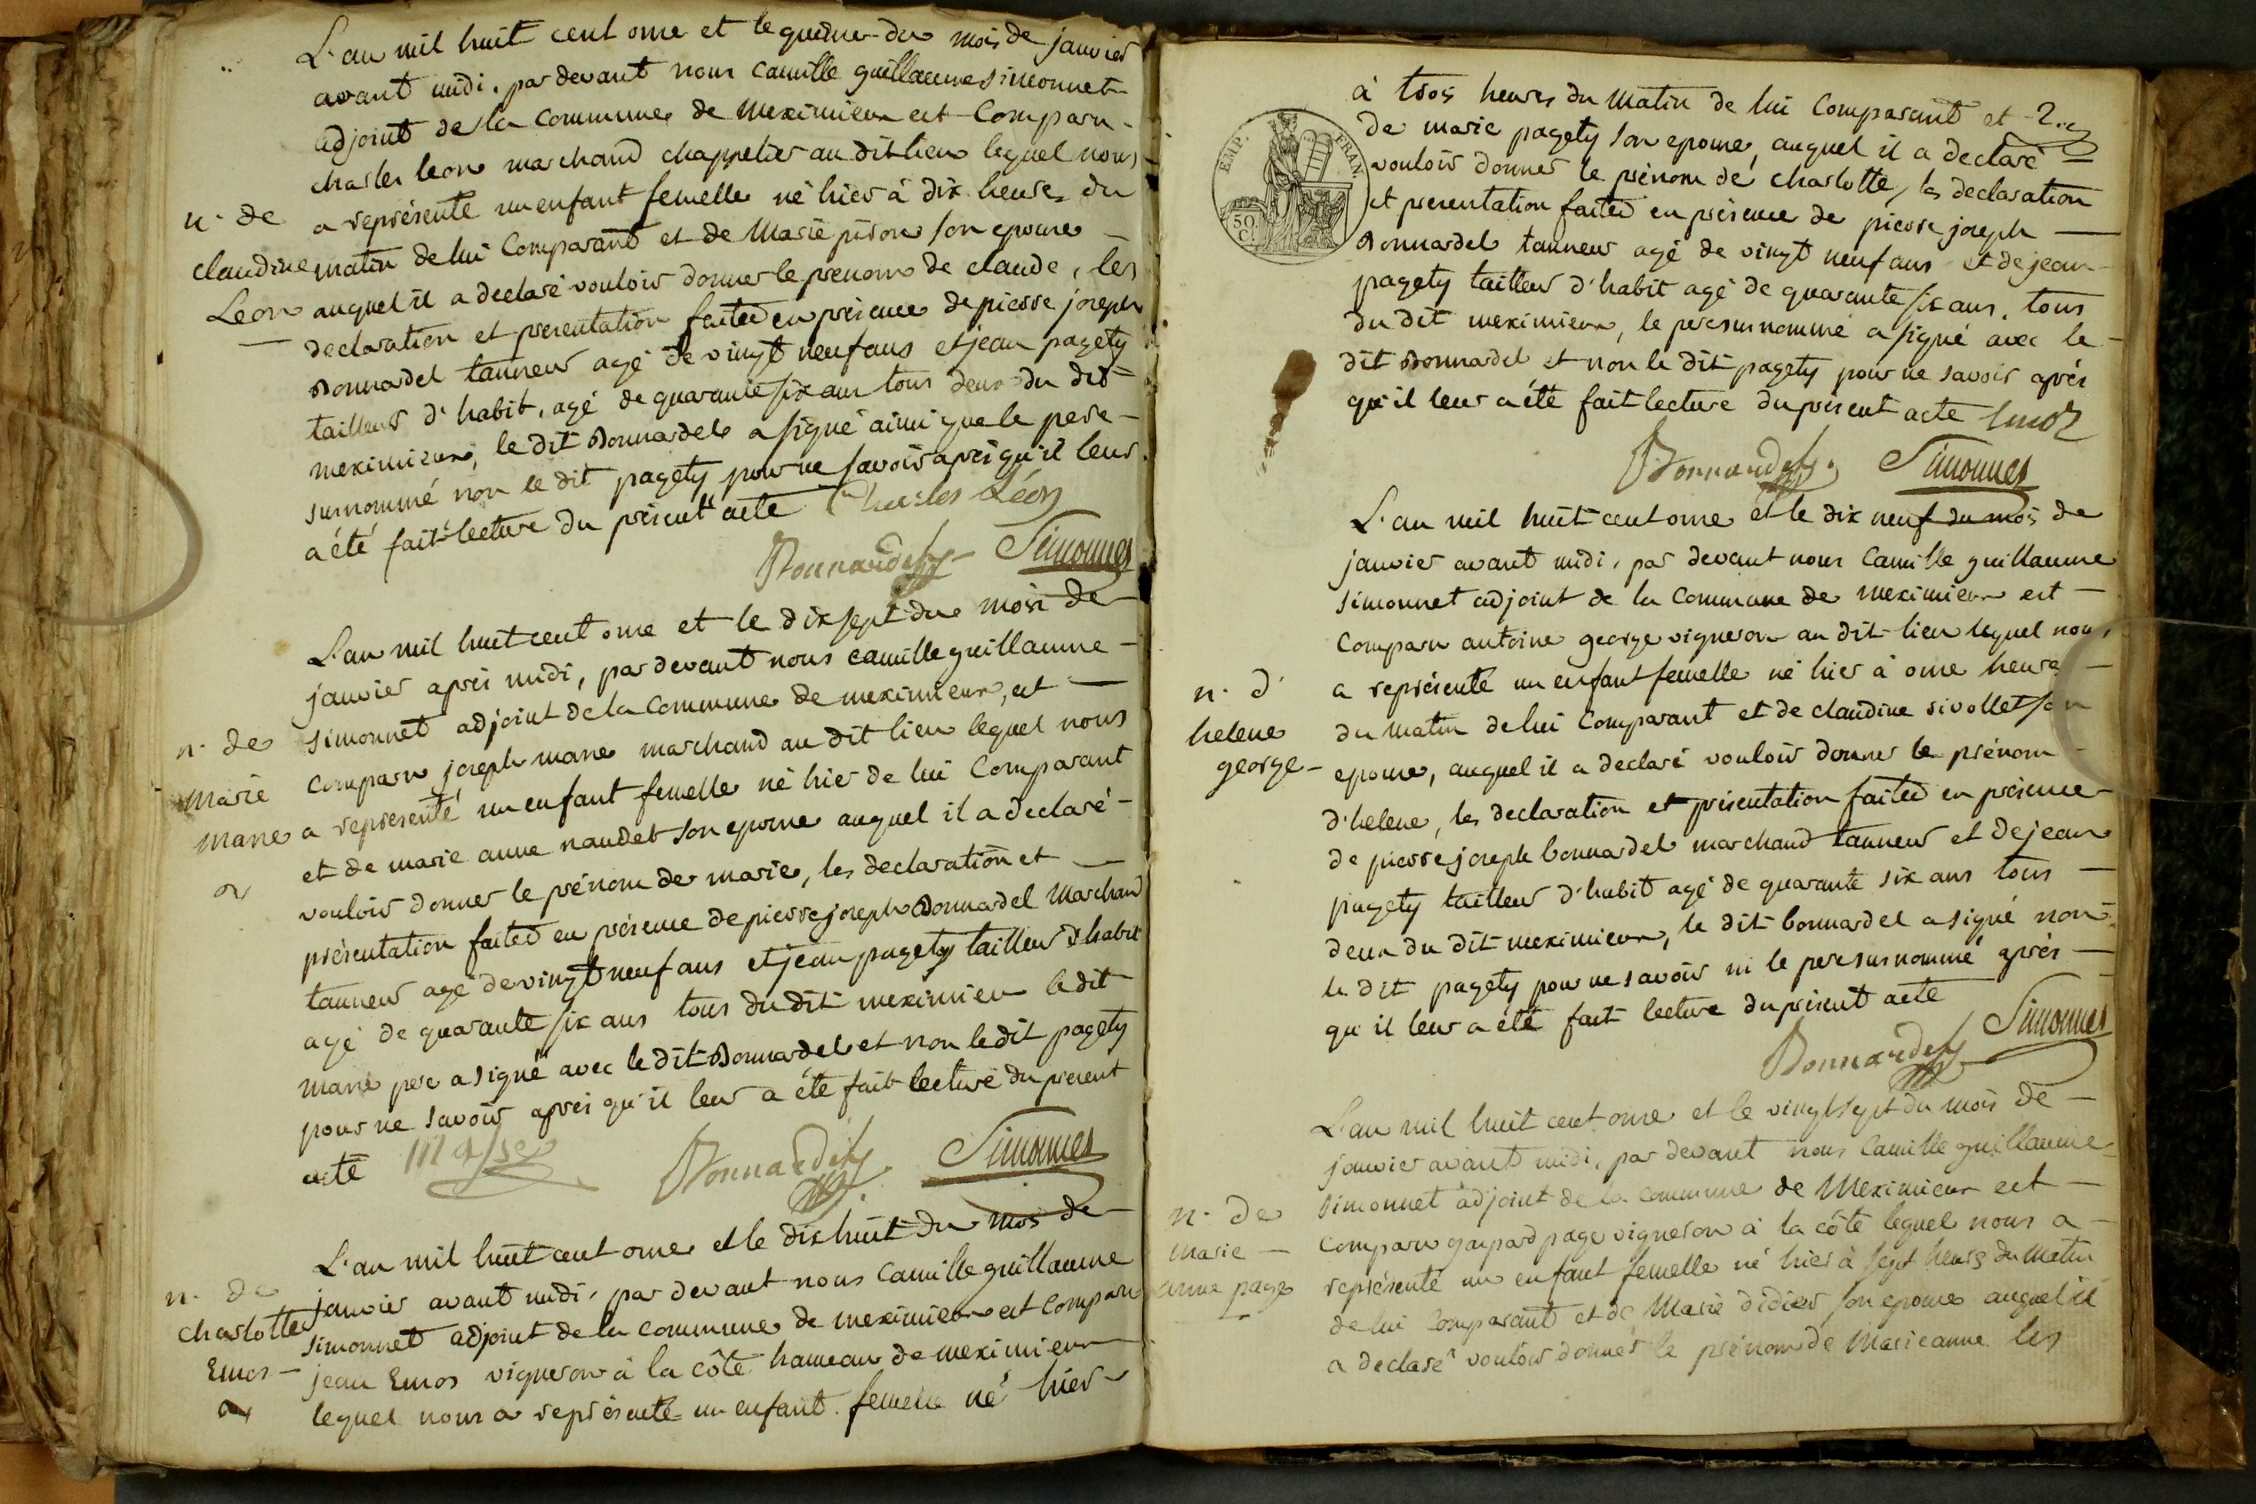 L'an mil huit cent onze et le quinze du mois de janvier
avant midi, par devant nous camille guillaume simonnet
adjoint de la commune de meximieux est comparu
charles leon marchand chappelier au dit lieu lequel nous
n. de
claudine
Leon
a représenté un enfant femelle né hier à dix heures du
matin de lui comparant et de Marie pison son epouse
auquel il a declaré vouloir donner le prenom de claude, les
declaration et presentation faites en présence de pierre joseph
Bonnardel tanneur agé de vingt neuf ans et jean pagety
tailleur d'habit, agé de quarante six ans tous deux du dit
meximieux, le dit Bonnardel a signé ainsi que le pere
surnommé non le dit pagety pour ne savoir après qu'il leur
a été fait lecture du présent acte Charles Léon
Bonnardel Simonnet
L'an mil huit cent onze et le dix sept du mois de
janvier après midi, par devant nous camille guillaume
n. de
Marie
Mane
simonnet adjoint de la commune de meximieux, est
comparu joseph mane marchand au dit lieu lequel nous
a représenté un enfant femelle né hier de lui comparant
et de marie anne naudet son epouse auquel il a declaré
vouloir donner le prénom de marie, les declaration et
présentation faites en présence de pierre joseph Bonnardel marchand
tanneur agé de vingt neuf ans et jean pagety tailleur d'habit
agé de quarante six ans tous du dit meximieux le dit
mane pere a signé avec le dit Bonnardel et non le dit pagety
pour ne savoir après qu'il leur a été fait lecture du présent
acte Masse Bonnardel Simonnet
L'an mil huit cent onze et le dix huit du mois de
n. de
charlotte
Emos
janvier avant midi, par devant nous camille guillaume
simonnet adjoint de la commune de meximieux est comparu
jean Emos vigneron à la côte hameau de meximieux
lequel nous a représenté un enfant femelle né hier
EMP. FRAN.
50 C.
à trois heures du matin de lui comparant et 2.
de marie pagety son epouse, auquel il a declaré
vouloir donner le prénom de charlotte, les declaration
et presentation faites en présence de pierre joseph
Bonnardel tanneur agé de vingt neuf ans et de jean
pagety tailleur d'habit agé de quarante six ans, tous
du dit meximieux, le pere surnommé a signé avec le
dit Bonnardel et non le dit pagety pour ne savoir après
qu'il leur a été fait lecture du présent acte
Bonnardel Simonnet
L'an mil huit cent onze et le dix neuf du mois de
janvier avant midi, par devant nous camille guillaume
simonnet adjoint de la commune de meximieux est
comparu antoine george vigneron au dit lieu lequel nous
n. d'
helene
george
a représenté un enfant femelle né hier à onze heures
du matin de lui comparant et de claudine rivollet son
epouse, auquel il a declaré vouloir donner le prénom
d'helene, les declaration et présentation faites en présence
de pierre joseph bonnardel marchand tanneur et de jean
pagety tailleur d'habit agé de quarante six ans tous
deux du dit meximieux, le dit bonnardel a signé non
le dit pagety pour ne savoir ni le pere surnommé après
qu'il leur a été fait lecture du présent acte
Bonnardel Simonnet
L'an mil huit cent onze et le vingt sept du mois de
janvier avant midi, par devant nous camille guillaume
n. de
Marie
anne page
simonnet adjoint de la commune de Meximieux est
comparu gaspard page vigneron à la côte lequel nous a
représenté un enfant femelle né hier à sept heures du matin
de lui comparant et de Marie didier son epouse auquel il
a declaré vouloir donner le prénom de Marieanne les